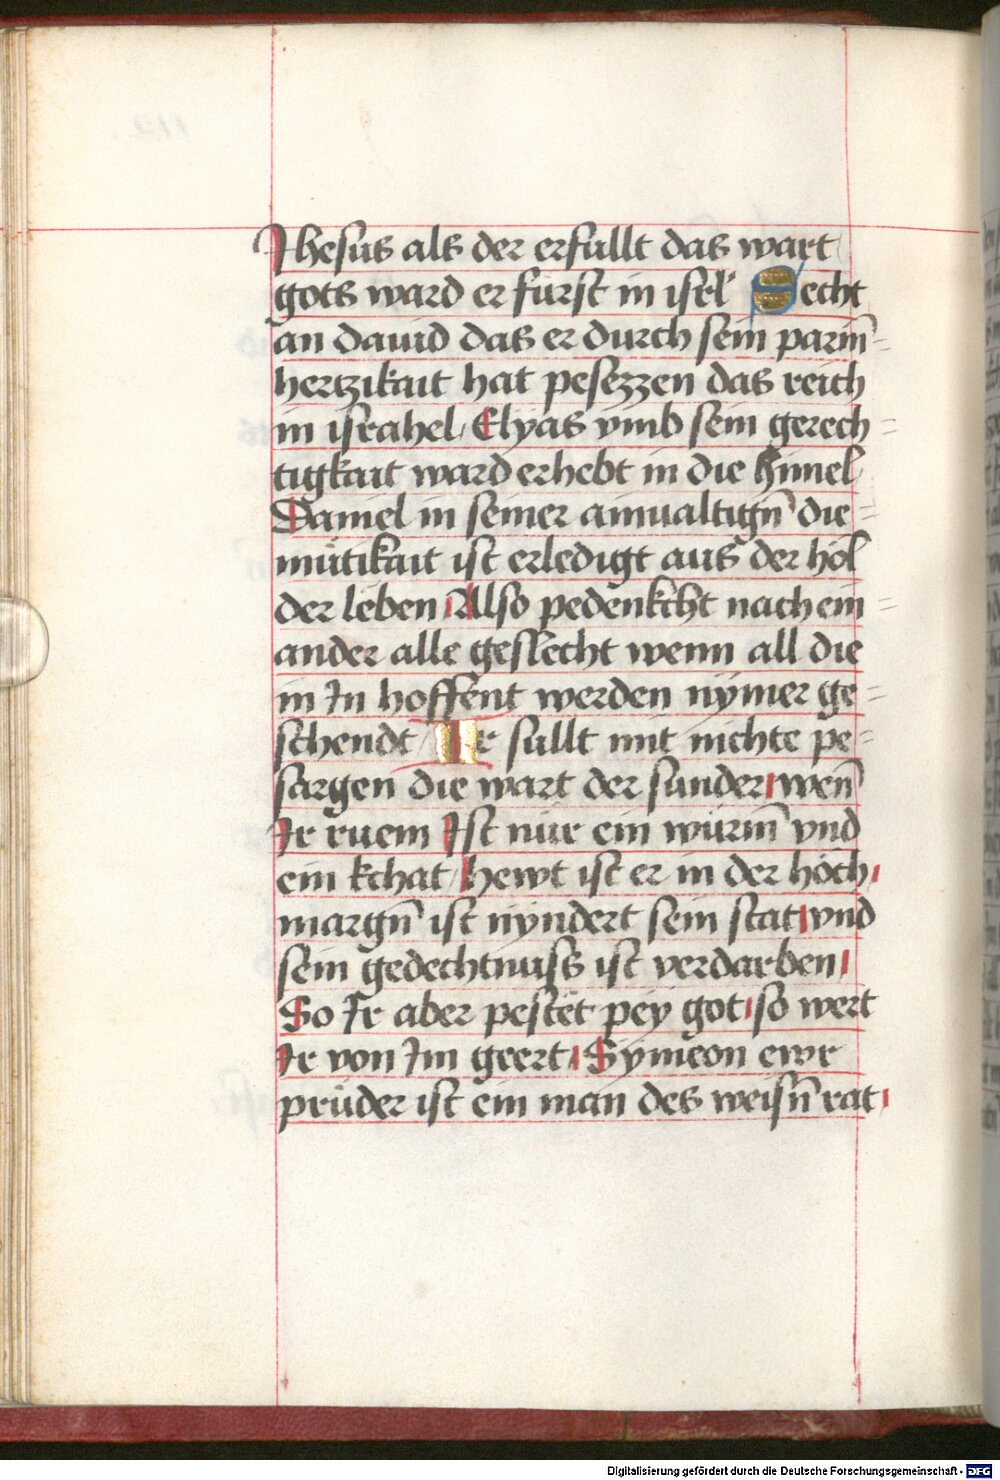 Jhesus als der erfullt das wart
gots ward er fürst in isrl̄ Secht
an dauid das er durch sein parm̄=
hertzikait hat pesezzen das reich
in israhel / Elyas vmb sein gerech=
tigkait ward erhebt in die himel
Daniel in seiner ainualtign̄ die=
mütikait ist erledigt aus der höl
der leben Also pedenkcht nach ein=
ander alle geslecht wenn all die
in In hoffent werden nymer ge=
schendt / Ir sullt mit nichte pe=
sargen die wart der sunder wen̄
Ir ruem Ist nür ein würm̄ vnd
ein kchat / hewt ist er in der höch
margn̄ ist nyndert sein stat vnd
sein gedechtnuss ist verdarben
So Ir aber pestet pey got so wert
Ir von Im geert Symeon ewr
prüder ist ein man des weisn̄ rat
Digitalisierung gefördert durch die Deutsche Forschungsgemeinschaft - DFG